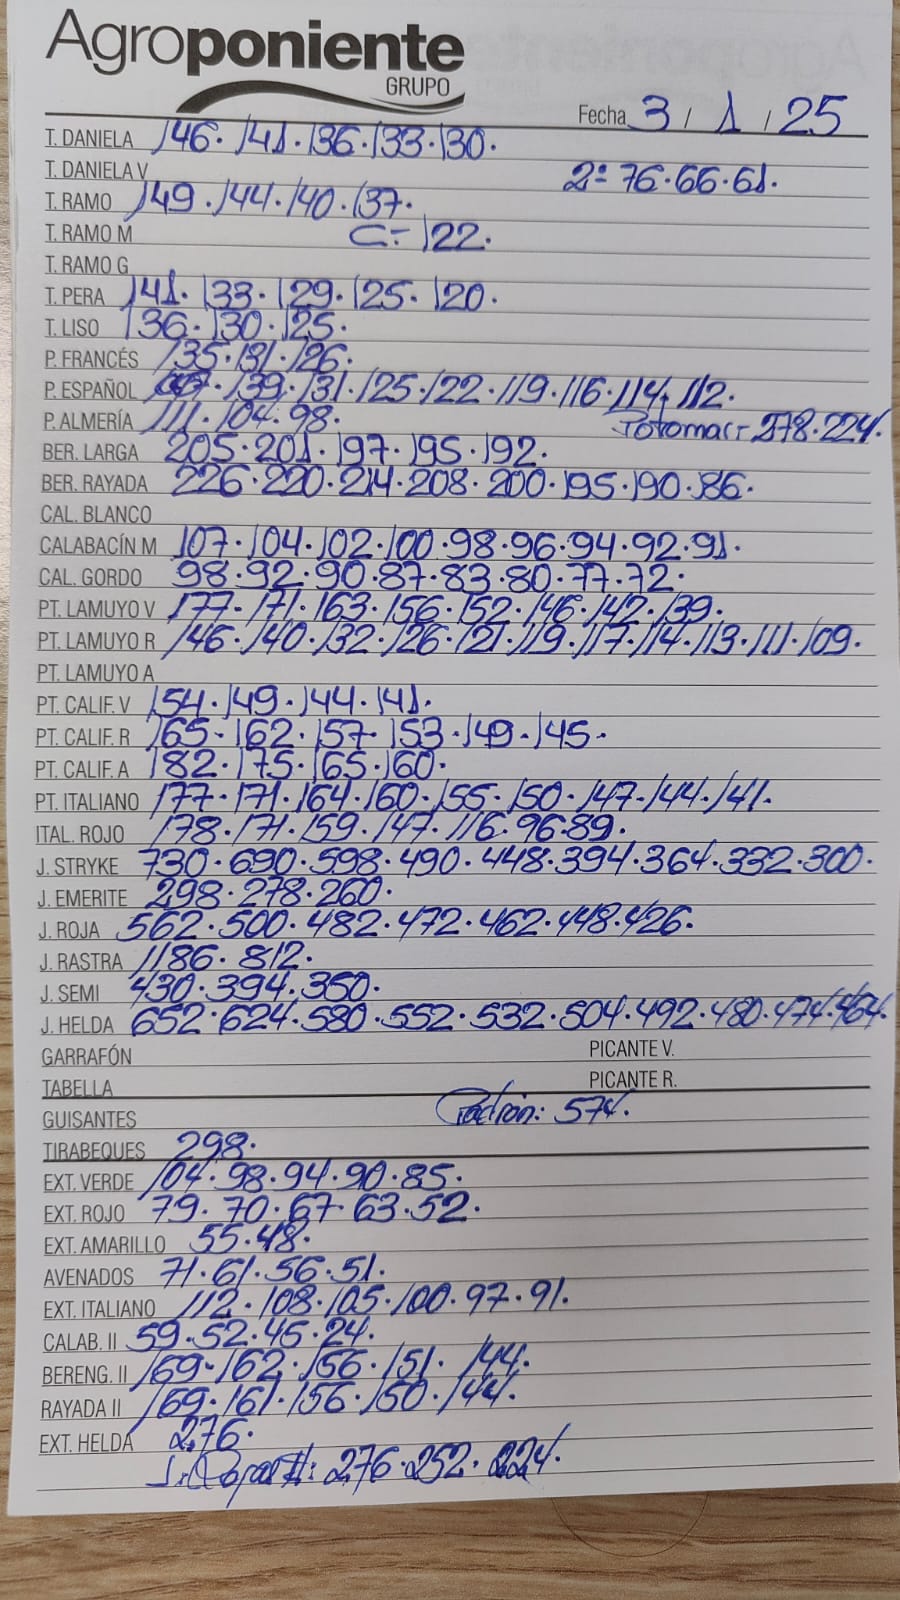 Agroponiente
GRUPO
Fecha 3 / 1 / 25
T. DANIELA 146. 141. 136. 133. 130.
T. DANIELA V 2ª 76. 66. 61.
T. RAMO 149. 144. 140. 137.
T. RAMO M C.- 122.
T. RAMO G
T. PERA 141. 133. 129. 125. 120.
T. LISO 136. 130. 125.
P. FRANCÉS 135. 131. 126.
P. ESPAÑOL 139. 131. 125. 122. 119. 116. 114. 112.
P. ALMERÍA 111. 104. 98. 278. 224.
BER. LARGA 205. 201. 197. 195. 192.
BER. RAYADA 226. 220. 214. 208. 200. 195. 190. 186.
CAL. BLANCO
CALABACÍN M 107. 104. 102. 100. 98. 96. 94. 92. 91.
CAL. GORDO 98. 92. 90. 87. 83. 80. 77. 72.
PT. LAMUYO V 177. 171. 163. 156. 152. 146. 142. 139.
PT. LAMUYO R 146. 140. 132. 126. 121. 119. 117. 114. 113. 111. 109.
PT. LAMUYO A
PT. CALIF. V 154. 149. 144. 141.
PT. CALIF. R 165. 162. 157. 153. 149. 145.
PT. CALIF. A 182. 175. 165. 160.
PT. ITALIANO 177. 171. 164. 160. 155. 150. 147. 144. 141.
ITAL. ROJO 178. 171. 159. 147. 116. 96. 89.
J. STRYKE 730. 690. 598. 490. 448. 394. 364. 332. 300.
J. EMERITE 298. 278. 260.
J. ROJA 562. 500. 482. 472. 462. 448. 426.
J. RASTRA 1186. 812.
J. SEMI 430. 394. 350.
J. HELDA 652. 624. 580. 552. 532. 504. 492. 480. 474. 464.
GARRAFÓN PICANTE V.
TABELLA PICANTE R.
GUISANTES Padrón: 574.
TIRABEQUES 298.
EXT. VERDE 104. 98. 94. 90. 85.
EXT. ROJO 79. 70. 67. 63. 52.
EXT. AMARILLO 55. 48.
AVENADOS 71. 61. 56. 51.
EXT. ITALIANO 112. 108. 105. 100. 97. 91.
CALAB. II 59. 52. 45. 24.
BERENG. II 169. 162. 156. 151. 144.
RAYADA II 169. 161. 156. 150. 144.
EXT. HELDA 276.
276. 252. 224.